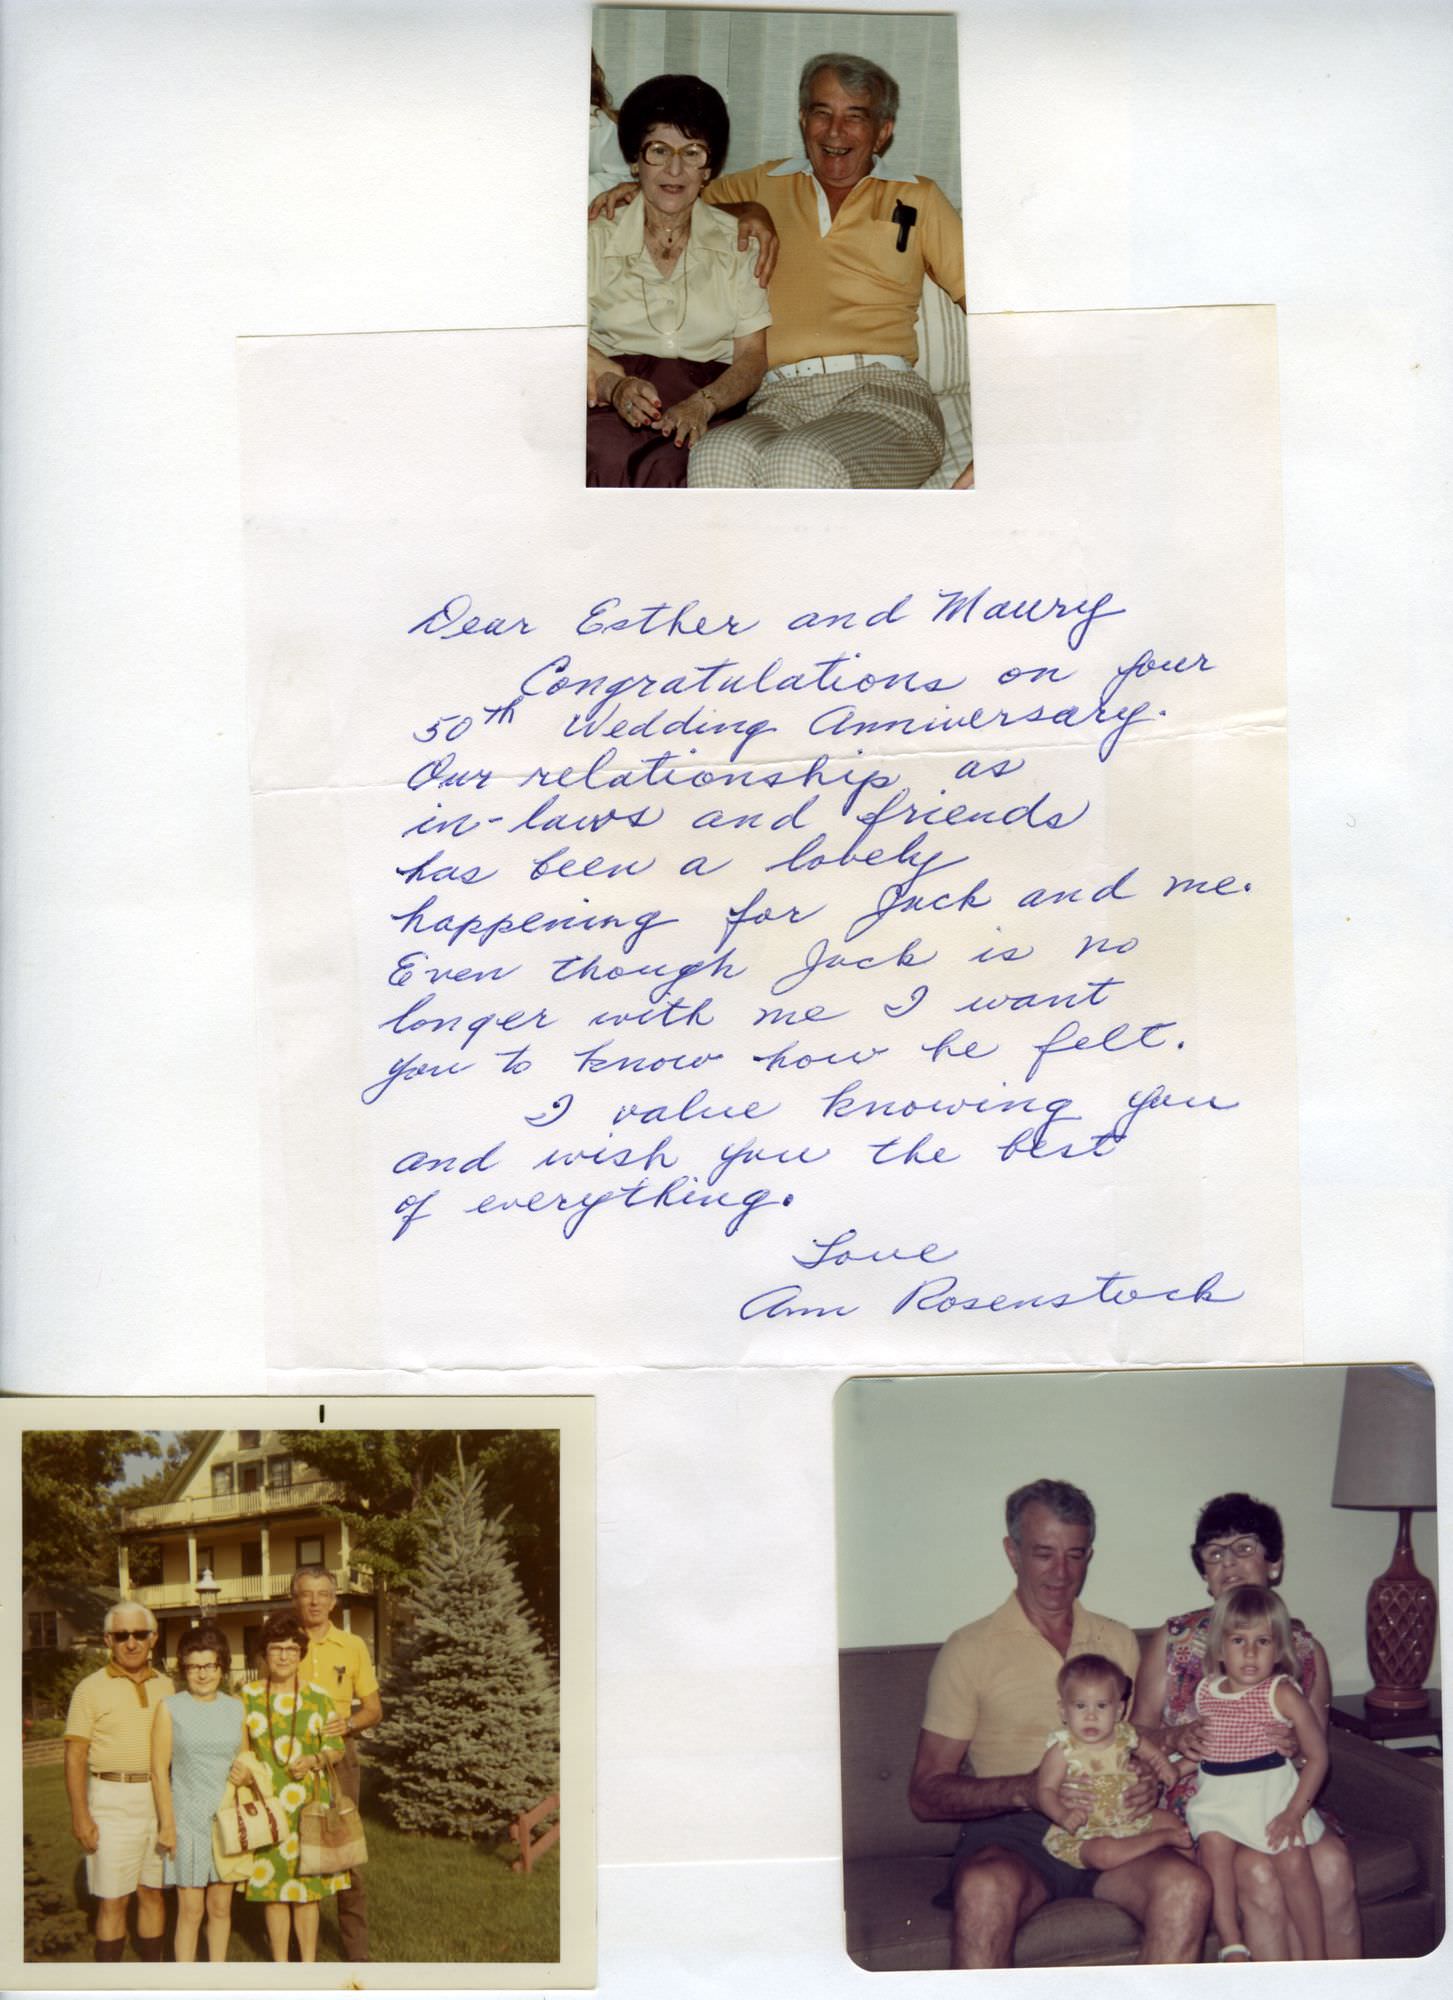 Dear Esther and Maury
Congratulations on your
50th Wedding Anniversary.
Our relationship as
in-laws and friends
has been a lovely
happening for Jack and me.
Even though Jack is no
longer with me I want
you to know how he felt.
I value knowing you
and wish you the best
of everything.
Love
Ann Rosenstock